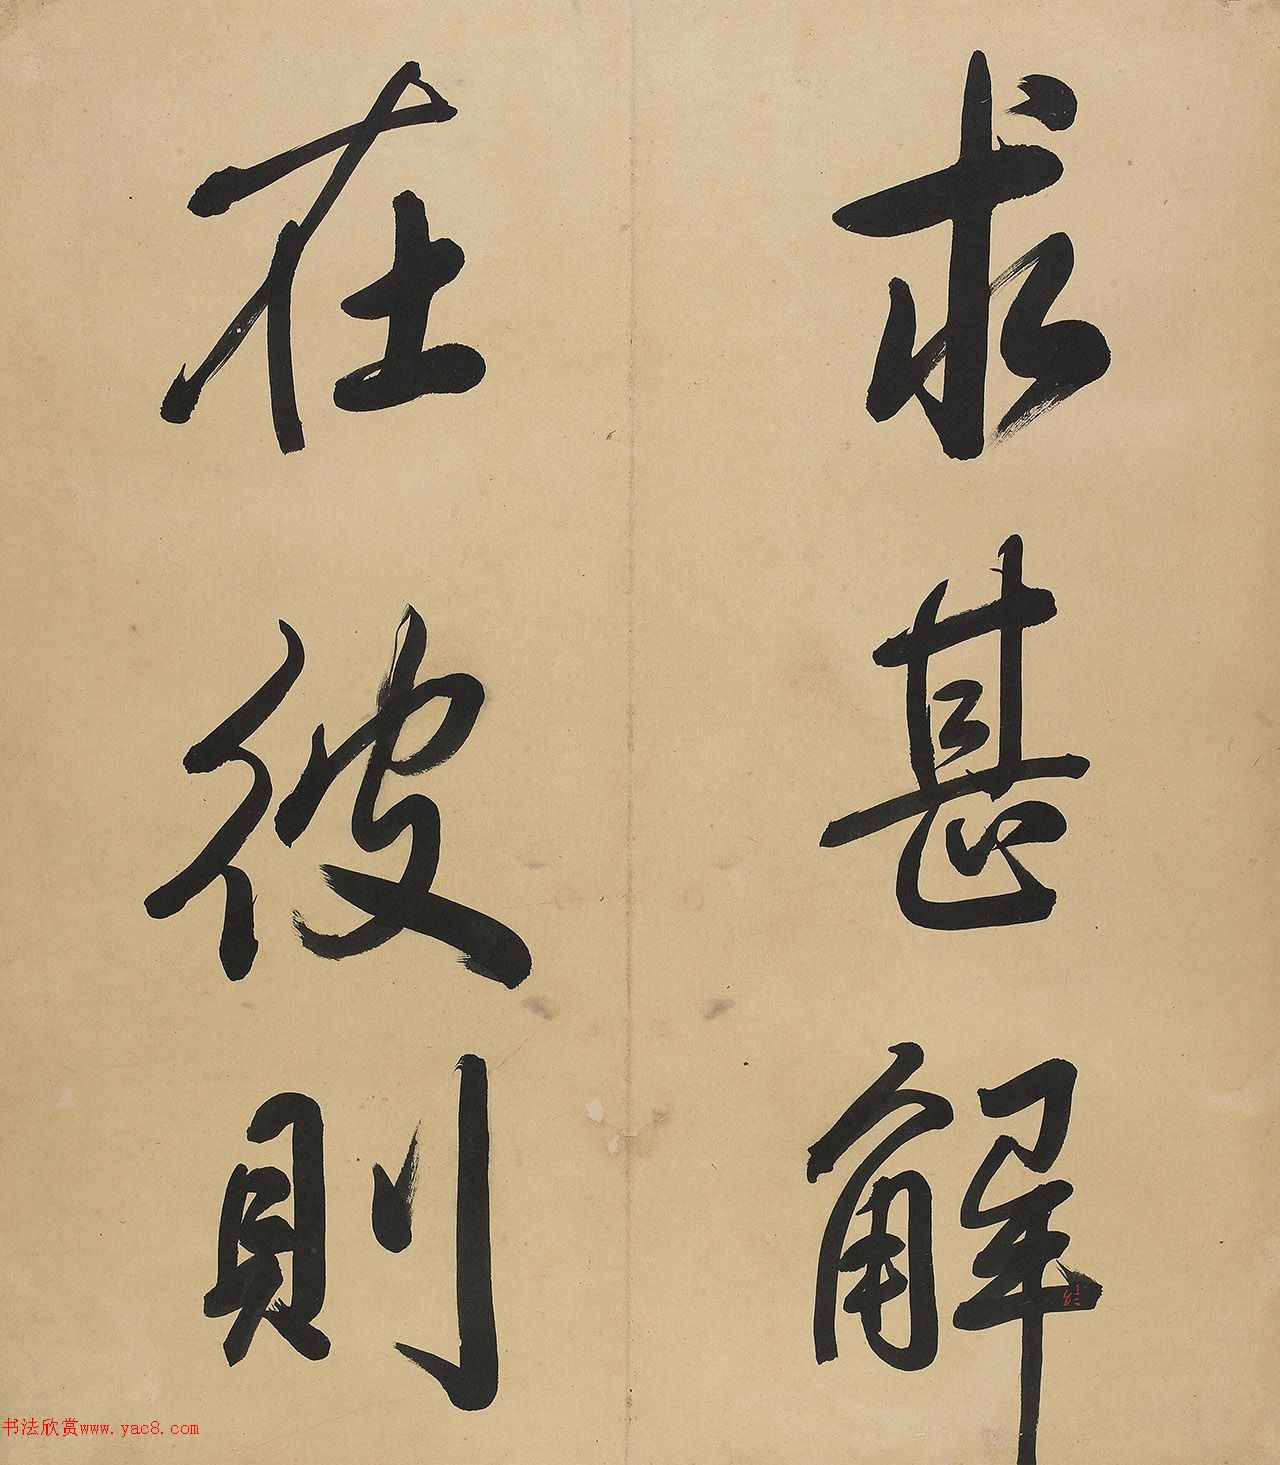 求甚解
在彼則
书法欣赏www.yac8.com